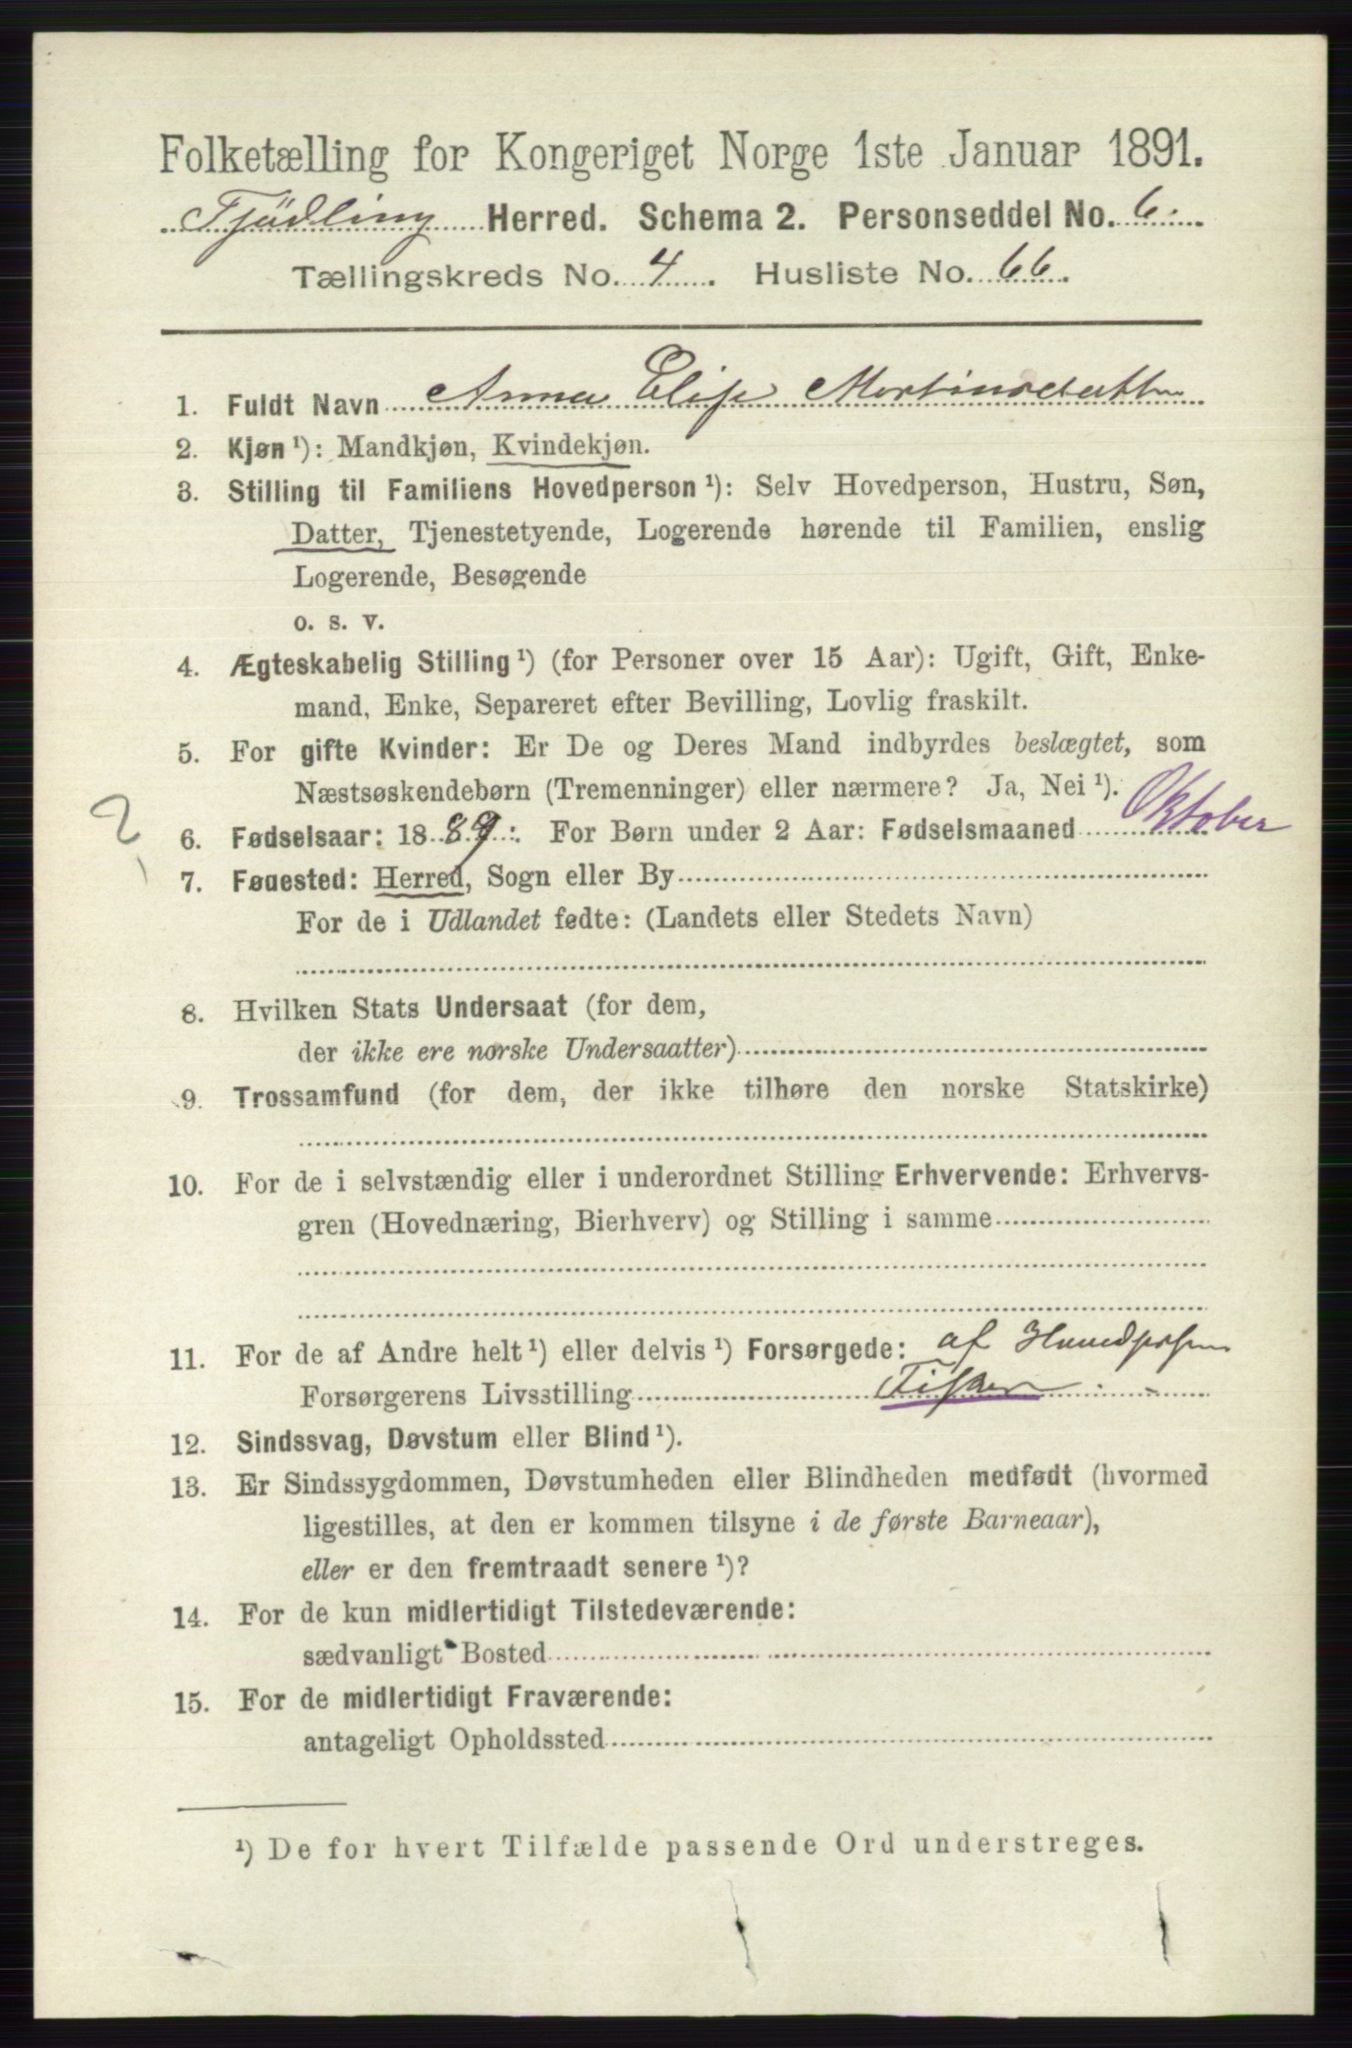 Folketælling for Kongeriget Norge 1ste Januar 1891.
Tjödling Herred. Schema 2. Personseddel No. 6.
Tællingskreds No. 4. Husliste No. 66.
1. Fuldt Navn Anna Elise Martinsdatter
2. Kjøn ¹): Mandkjøn, Kvindekjøn.
3. Stilling til Familiens Hovedperson ¹): Selv Hovedperson, Hustru, Søn,
Datter, Tjenestetyende, Logerende hørende til Familien, enslig
Logerende, Besøgende
o. s. v.
4. Ægteskabelig Stilling ¹) (for Personer over 15 Aar): Ugift, Gift, Enke-
mand, Enke, Separeret efter Bevilling, Lovlig fraskilt.
5. For gifte Kvinder: Er De og Deres Mand indbyrdes beslægtet, som
Næstsøskendebørn (Tremenninger) eller nærmere? Ja, Nei ¹).
2
6. Fødselsaar: 1889. For Børn under 2 Aar: Fødselsmaaned Oktober
7. Fødested: Herred, Sogn eller By
For de i Udlandet fødte: (Landets eller Stedets Navn)
8. Hvilken Stats Undersaat (for dem,
der ikke ere norske Undersaatter)
9. Trossamfund (for dem, der ikke tilhøre den norske Statskirke)
10. For de i selvstændig eller i underordnet Stilling Erhvervende: Erhvervs-
gren (Hovednæring, Bierhverv) og Stilling i samme
11. For de af Andre helt ¹) eller delvis ¹) Forsørgede: af
Forsørgerens Livsstilling Fisker
12. Sindssvag, Døvstum eller Blind ¹).
13. Er Sindssygdommen, Døvstumheden eller Blindheden medfødt (hvormed
ligestilles, at den er kommen tilsyne i de første Barneaar),
eller er den fremtraadt senere ¹)?
14. For de kun midlertidigt Tilstedeværende:
sædvanligt Bosted
15. For de midlertidigt Fraværende:
antageligt Opholdssted
¹) De for hvert Tilfælde passende Ord understreges.